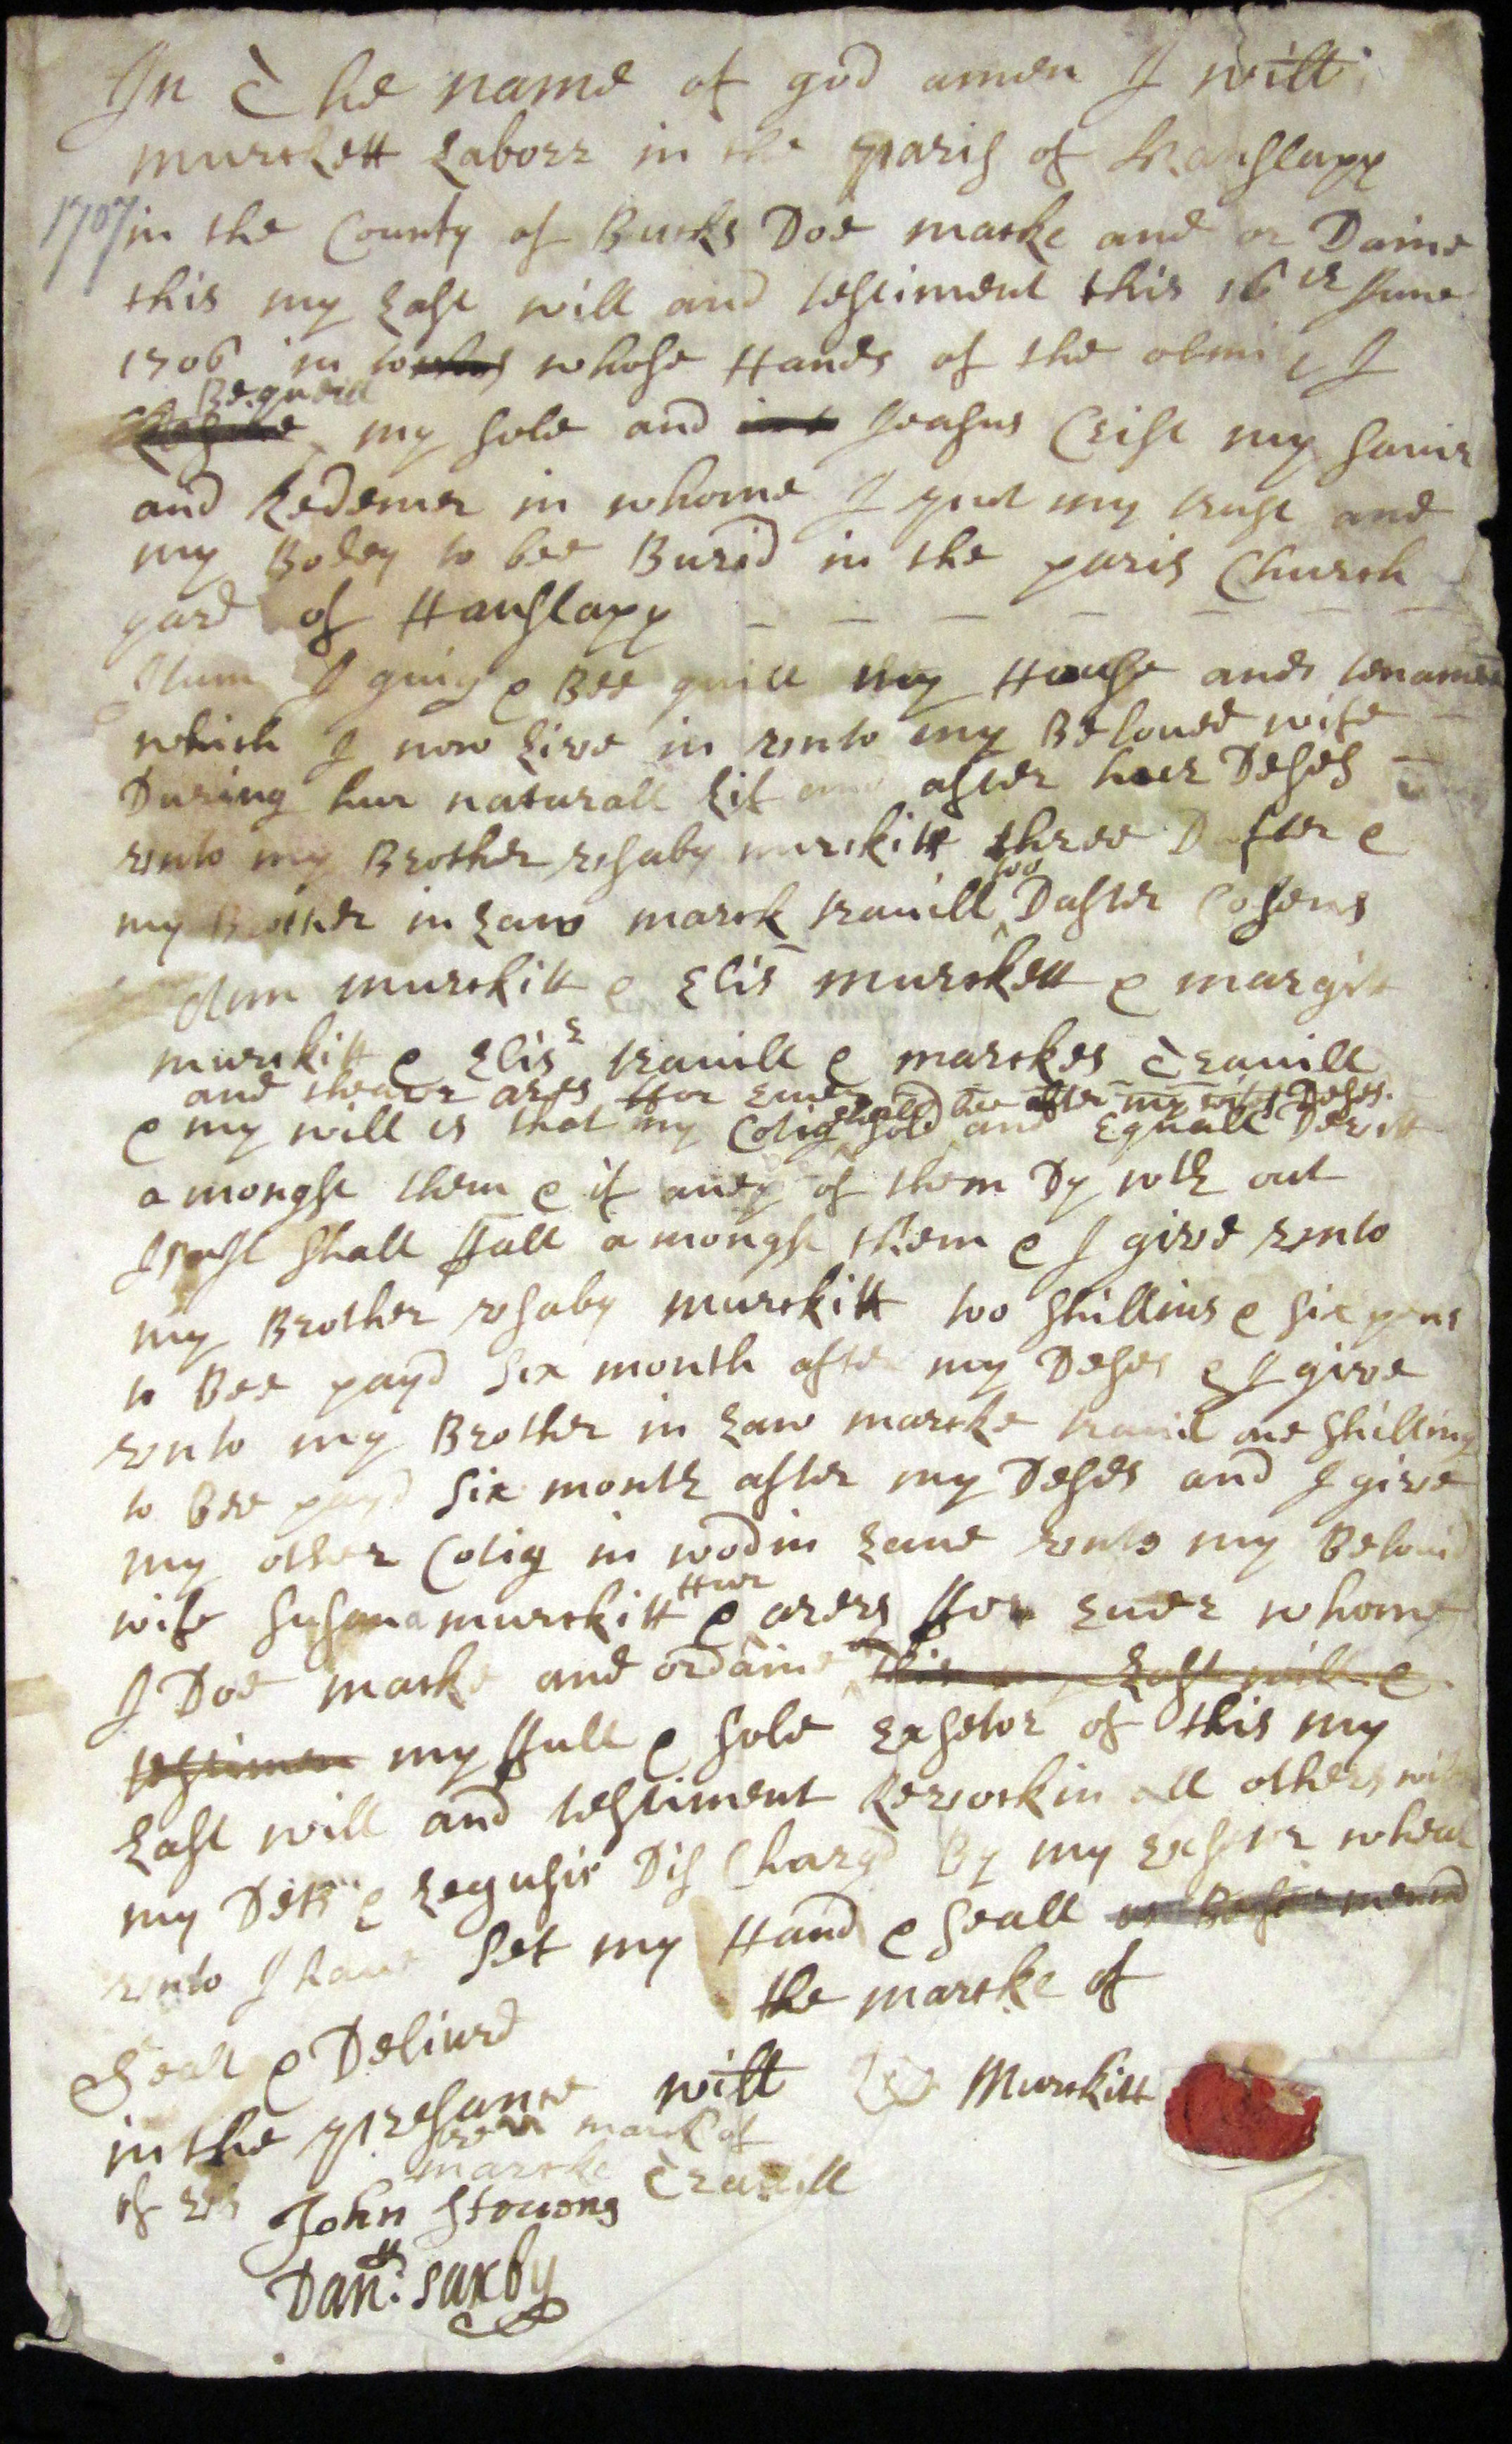 In The name of god amen I will
murckett Laborr in the parish of Hanslapp
1707
in the County of Bucks Doe marke and or Daine
this my Last will and testiment this 16th June
1706 in to whose Hands of the almity I
Bequeill
my sole and Jeasus Crist my savir
and Redemer in whome I put my trust and
my Bodey to bee Burid in the paris Church
yard of Hanslapp
Itum I guiy & Bee quill my House and tenament
which I now Live in vnto my Beloued wife
During hur naturall Lif and after huer Deses
vnto my Brother vsaby murckitt three Dafter &
too
my Brother in Law marck trauill Dafter Cosens
Ann murckitt & Elis murckett & margitt
murckitt & Elisr trauill & marckes Trauill
and theaor ares ffor Euer
shald bee after my wifes Deses
& my will is that my Cotig sold and Equall Devitt
a mongst them & if aney of them Dy wth out
shall ffall a mongst them & I give vnto
my Brother vsaby murckitt too shillins & six pens
to Bee payd six month after my Deses & I give
vnto my Brother in Law marcke trauil one shilling
to Bee payd six month after my Deses and I give
my other Cotig in wodin Lane vnto my Belouid
Hur
wife susana murckitt & arers ffor Euer whome
I Doe marke and ordaine this my Last will &
testimen my ffull & sole Exsetor of this my
Last will and testiment Revockin all others wills
my Dets & Legusis Dis Chargd By my Exsetor wheat
vnto I haue set my Hand & seall as Befor menind
the marcke of
Seall & Deliurd
in the presance will Murckitt
of vs
marck of
marcke Trauill
John Stouong
Danll: Saxby